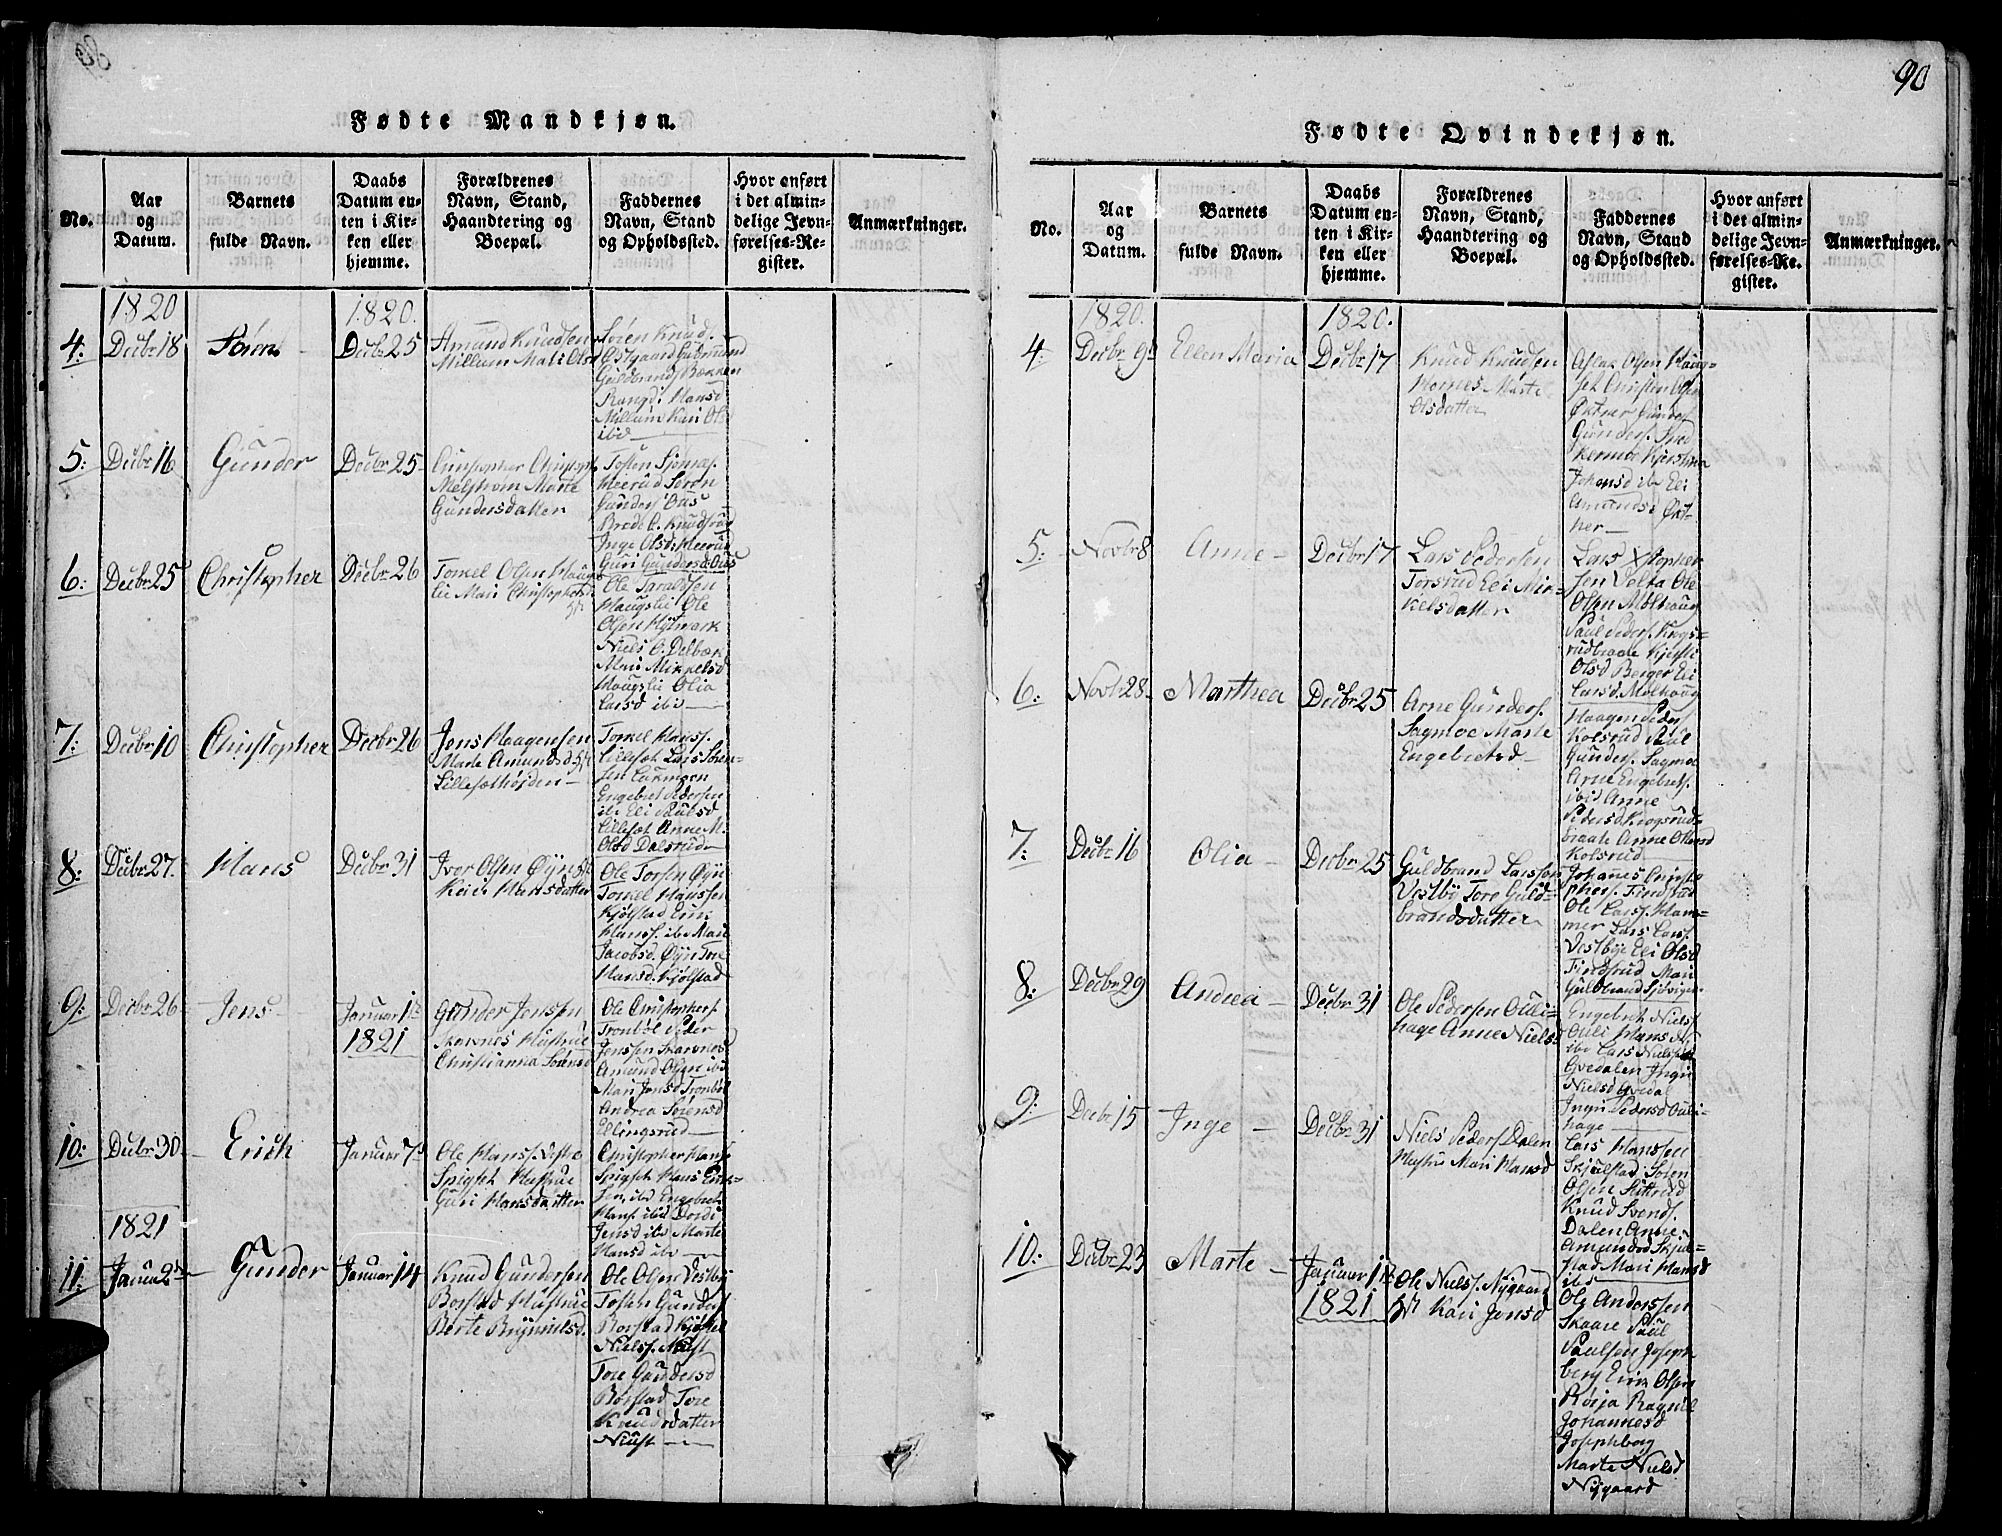 90
Fødte Mandkjøn.
No.
Aar
og
Datum.
Barnets
fulde Navn.
Daabs
Datum en-
ten i Kir-
ken eller
hjemme.
Forældrenes
Navn, Stand,
Haandtering og
Boepæl.
Faddernes
Navn, Stand
og Opholdssted.
Hvor anført
i det almin-
delige Jevn-
førelses-Re-
gister.
Anmærkninger.
1820
1820.
4: Decbr 18
Søren
Decbr 25
Amund Knudsen
Millum Mali Olsd
Søren Knuds.
Østgaard Gudmund
Guldbrands Bækken
Rangdi Hansd
Millum Kari Ols
ibid
5: Decbr 16
Gunder
Decbr 25
Christopher Christoph
Melstrom Marte
Gundersdatter
Tosten
Meerud Søren
Gunders Aas
Brede C. Knudsrud
Inge Olsd Meerud
Guri Gundersd Aas
6: Decbr 25
Christopher
Decbr 26
Torkel Olsen Haugs
lie Mari Christophersd
Ole Taraldsen
Haugslie Ole
Olsen Hytmark
Niels C. Delbæk
Mari Mikkelsd
Haugslie Olia
Larsd ibid
7: Decbr 10
Christopher
Decbr 26
Jens Haagensen
Marte Amundsd
Lillesæthøiden
Torkel Hans.
Lillesæt Lars Søren-
sen
Engebret Pedersen
ibi Eli Paulsd
Lillesæt Anne M.
Olsd Dalsrud
8: Decbr 27.
Hans
Decbr 31
Iver Olsen Øyn
Kari Hansdatter
Ole Torsen Øyn
Torkel Hanssen
Kjølstad Erik
Hans. ibi Mari
Jacobsd. Øyn Tore
Hansd. Kjølstad
9: Decbr 26
Jens
Januar 1te
1821
Gunder Jensen
Skavnes Hustrue
Christianna Sørensd
Ole Christophers.
Tronbøl Peder
Jenssen Skarvnes
Amund Olsen ibi
Mari Jensd Tronbøl
Andrea Sørensd
Ellingsrud
10: Decbr 30
Erich
Januar 7d
Ole Hans.
Spigset Hustrue
Guri Hansdatter
Christopher Hans
Spigset Hans Erik-
sen ibd Engebret
Hans. ibid Dordi
Jensd ibd Marte
Hansd ibd
1821
11: Janua 2d
Gunder
Januar 14
Knud Gundersen
Borstad Hustrue
Berte Brynnilsd.
Ole Olsen Vestby
Tosten Gunders
Borstad Kjøstel
Niels.
Tore Gundersd
Borstad Tore
Knudsdatter
Niust
90
Fødte Qvindekjøn.
No.
Aar
og
Datum.
Barnets
fulde Navn.
Daabs
Datum en-
ten i Kir-
ken eller
hjemme.
Forældrenes
Navn, Stand,
Haandtering og
Boepæl.
Faddernes
Navn, Stand
og Opholdssted.
Hvor anført
i det almin-
delige Jevn-
førelses-Re-
gister.
Anmærkninger.
1820.
1820.
4: Decbr 9d
Ellen Maria
Decbr 17
Knud Knudsen
Hornes Marte
Olsdatter
Aslak Olsen Haug-
set Christen Olsen
Øktner Gunder
Gunders.
Kjerstina
Johansd ibi Eli
Amundsd Økt-
ner
5: Novbr 8
Anne
Decbr 17
Lars Pedersen
Torsrud Eli Mik-
kelsdatter
Lars Xstopher
sen Velta Ole
Olsen Molhaug
Paul Peders. Krogs-
rudbraate Kjersti
Olsd Berger Eli
Larsd. Molhaug
6: Novbr 28
Marthea
Decbr 25
Arne Gunders.
Sagmoe Marte
Engebretsd
Haagen Peders
Kolsrud Paul
Gunders. Sagmoe
Arne Engebrets.
ibid Anne
Pedersd Krogsrud-
braate Anne
Kolsrud
7: Decbr 16
Olia
Decbr 25
Guldbrand Larssen
Vestby Tore Guld-
brandsdatter
Johanes Christo
phers. Findsrud
Ole Lars. Ham-
mer Lars Lars.
Vestbye Eli Olsd
Findsrud Mari
Guldbrand
8: Decbr 29
Andrea
Decbr 31
Ole Pedersen Ouli-
hage Anne Nielsd
Engebret Niels.
Ouli Hans
ibi Lars Nielsen
Qvedalen Ingri
Nielsd Qvedal
Ingri Pedersd Ouli-
hage
9: Decbr 15
Inge
Decbr 31
Niels Peders Dalen
Hustru Mari Hansd
Lars Hanssen
Skjulstad Søren
Olsen
Knud Svends.
Dalen Anne
Amundsd Skjul-
stad Mari Hansd
ibid
10: Decbr 23
Marte
Januar 1te
1821
Ole Niels. Nygaard
Kari Jensd
Ole Anderssen
Skaare Paul
Paulsen Joseph
berg Erik Olsen
Røisa Ragnil
Johannesd
Josephberg
Marte Nielsd
Nygaard